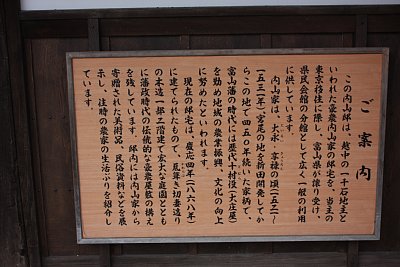 ご案内
この内山邸は、越中の一千石地主と
いわれた豪農内山家の邸宅を、当主の
東京移住に際し、富山県が譲り受け、
県民会館の分館として広く一般の利用
に供しています。
内山家は、大永・享禄の頃(一五二一〜
一五三一年)宮尾の地を新田開発してか
らこの地で四五〇年続いた家柄で、
富山藩の時代には歴代十村役(大庄屋)
を勤め地域の農業振興、文化の向上
に努めたといわれます。
現在の邸宅は、慶応四年(一八六八年)
に建てられたもので、瓦葺き切妻造り
の木造一部二階建で宏大な庭園ととも
に藩政時代の伝統的な豪農屋敷の構え
を残しています。邸内には内山家から
寄贈された美術品、民俗資料などを展
示し、往時の豪家の生活ぶりを紹介し
ています。